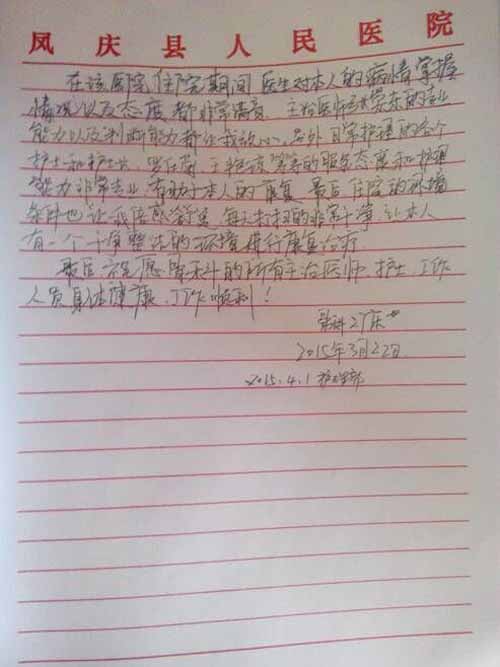 凤庆县人民医院
在该医院住院期间 医生对本人的病情掌握
情况以及态度都非常满意. 主治医师的专业
能力以及判断能力都让我放心. 另外日常护理的各个
护士和护士长. 等的服务态度和护理
能力非常专业. 有助于本人的康复. 最后住院的环境
条件也让我倍感舒适. 每天打扫的非常干净. 让本人
有一个干净整洁的环境进行康复治疗
最后祝愿骨外科的所有主治医师. 护士. 工作
人员身体健康. 工作顺利!
骨科27床
2015年3月22日.
2015.4.1 护理部